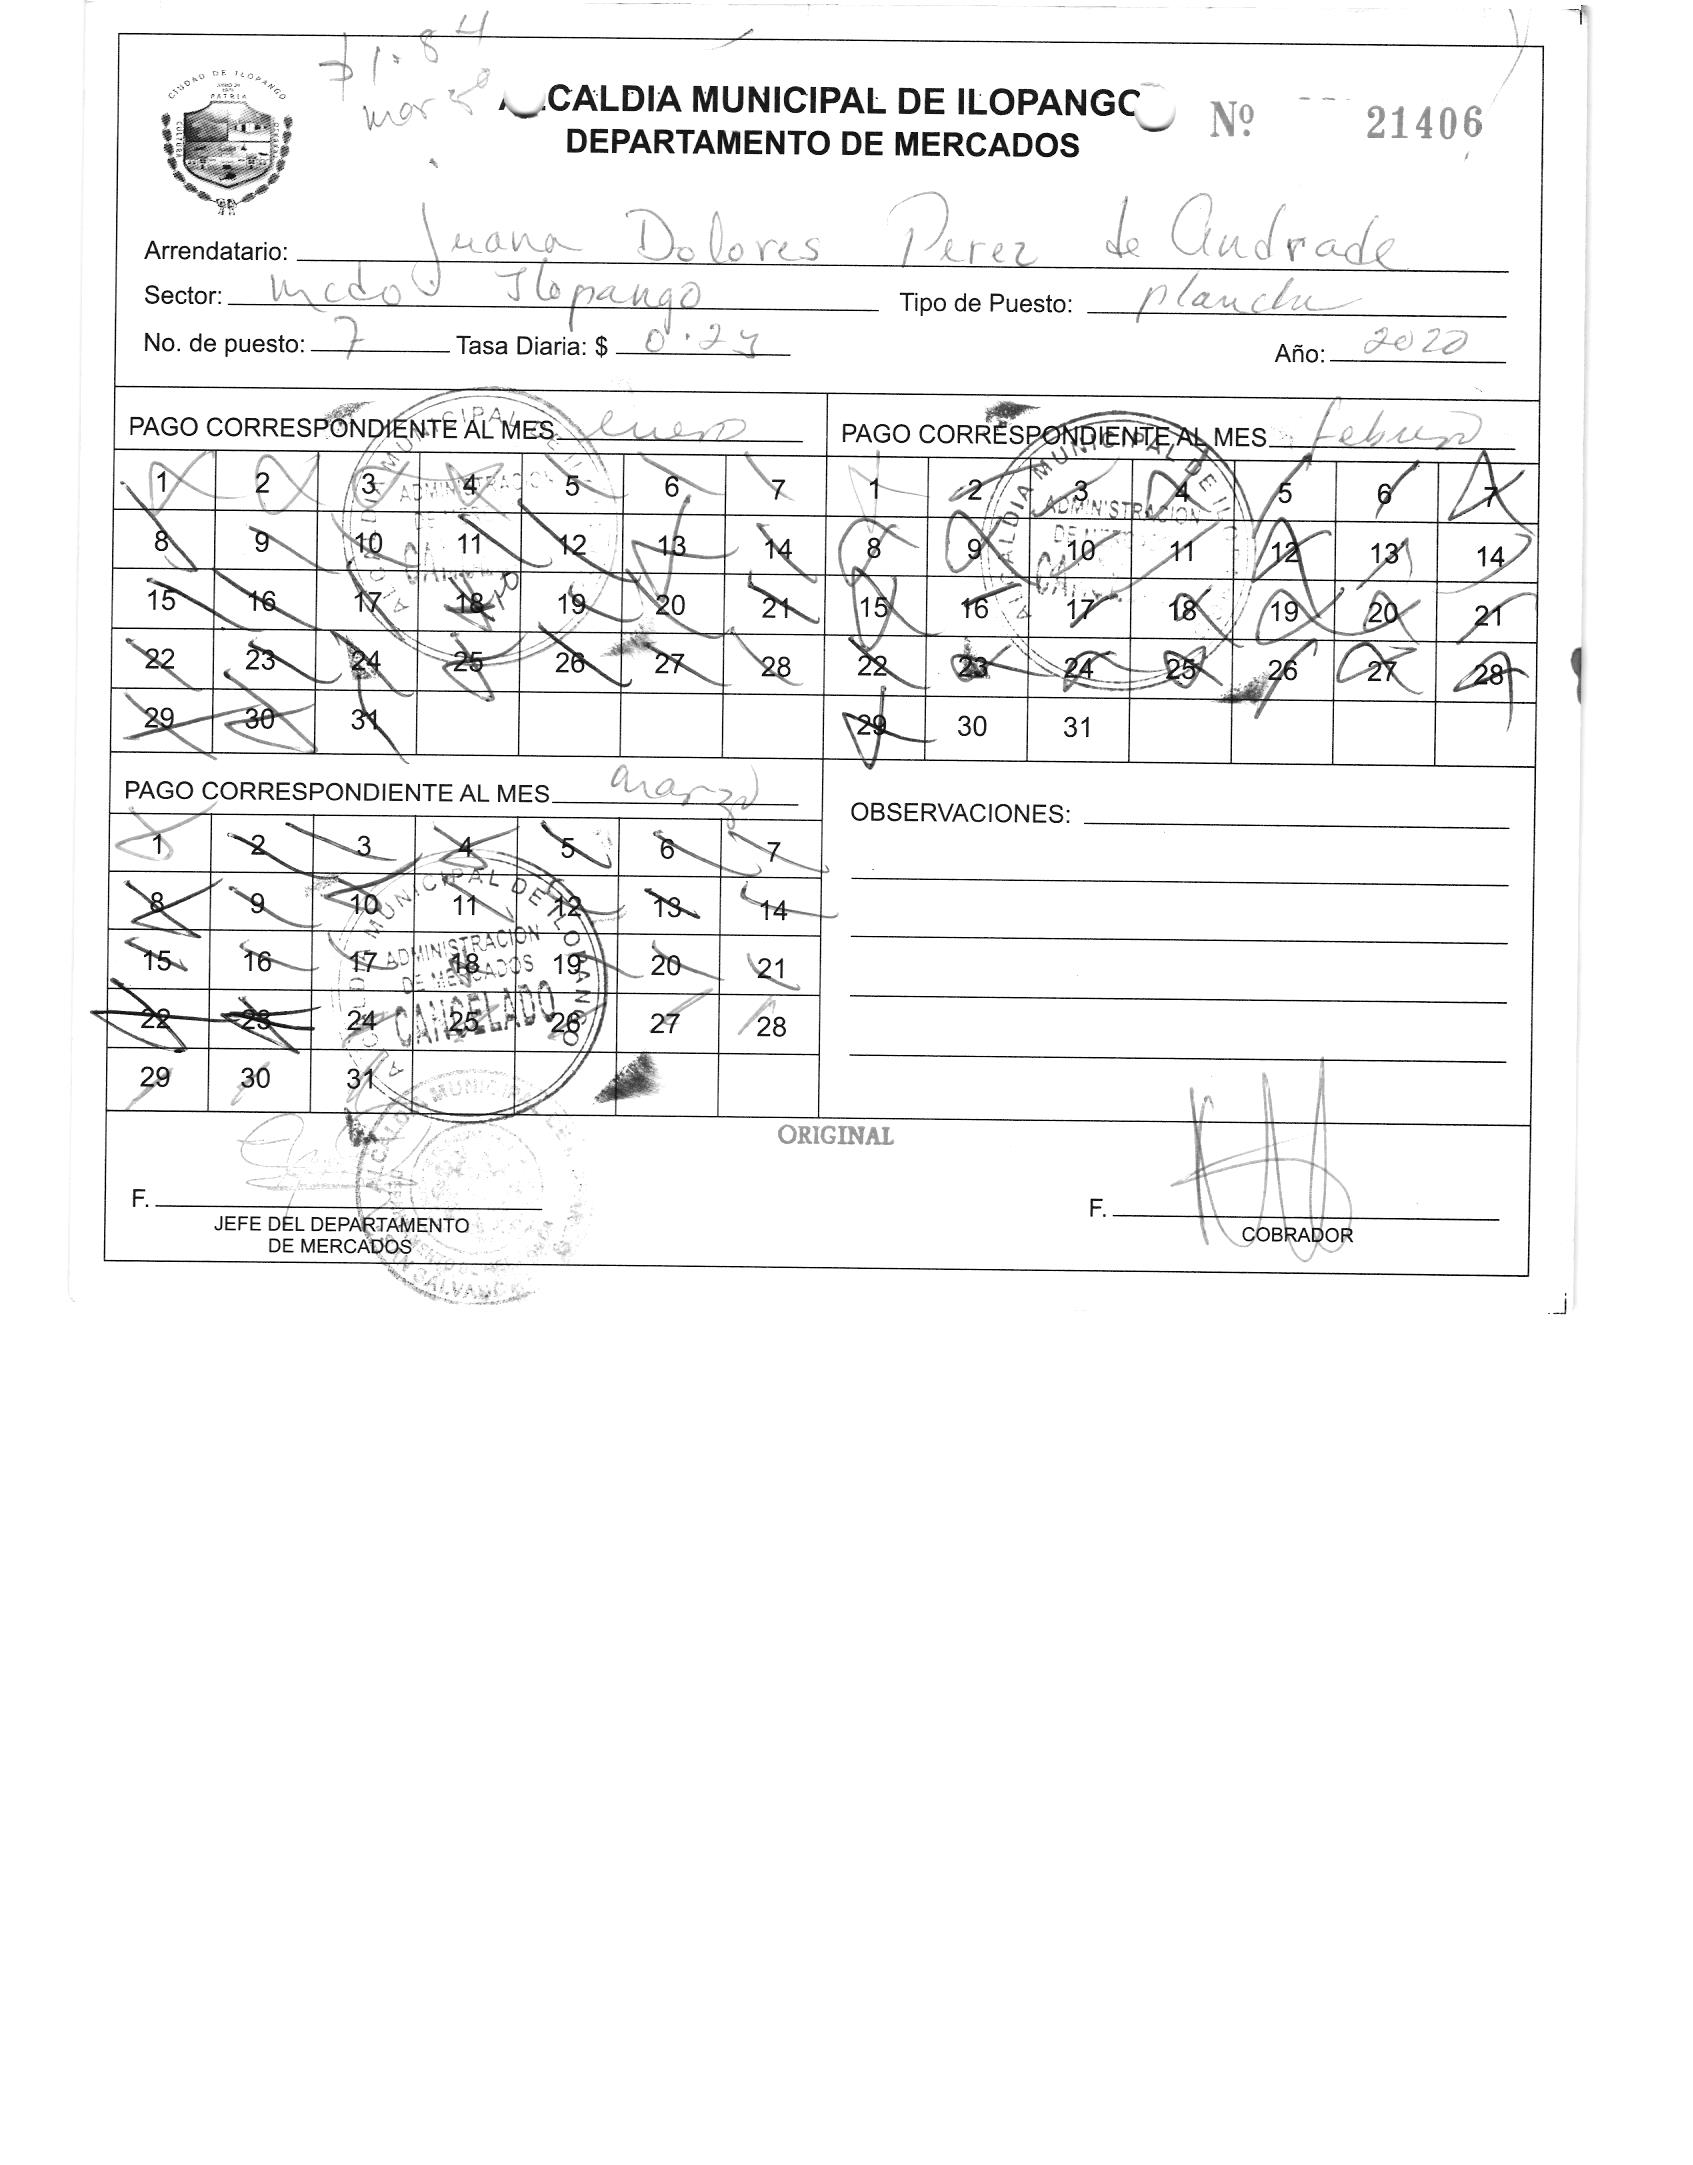 71.84
CIUDAD DE ILOPANGO
PATRIA
CULTURA
ALCALDIA MUNICIPAL DE ILOPANGO
Nº 21406
DEPARTAMENTO DE MERCADOS
Arrendatario: Juana Dolores Perez de Andrade
Sector: Mcdo. Ilopango Tipo de Puesto: plancha
No. de puesto: 7 Tasa Diaria: $ 0.23 Año: 2020
PAGO CORRESPONDIENTE AL MES enero
1 2 3 4 5 6 7
8 9 10 11 12 13 14
15 16 17 18 19 20 21
22 23 24 25 26 27 28
29 30 31
PAGO CORRESPONDIENTE AL MES febrero
1 2 3 4 5 6 7
8 9 10 11 12 13 14
15 16 17 18 19 20 21
22 23 24 25 26 27 28
29 30 31
PAGO CORRESPONDIENTE AL MES marzo
1 2 3 4 5 6 7
8 9 10 11 12 13 14
15 16 17 18 19 20 21
22 23 24 25 26 27 28
29 30 31
ALCALDIA MUNICIPAL DE ILOPANGO
ADMINISTRACION
DE MERCADOS
CANCELADO
OBSERVACIONES:
ORIGINAL
F.
JEFE DEL DEPARTAMENTO
DE MERCADOS
F.
COBRADOR